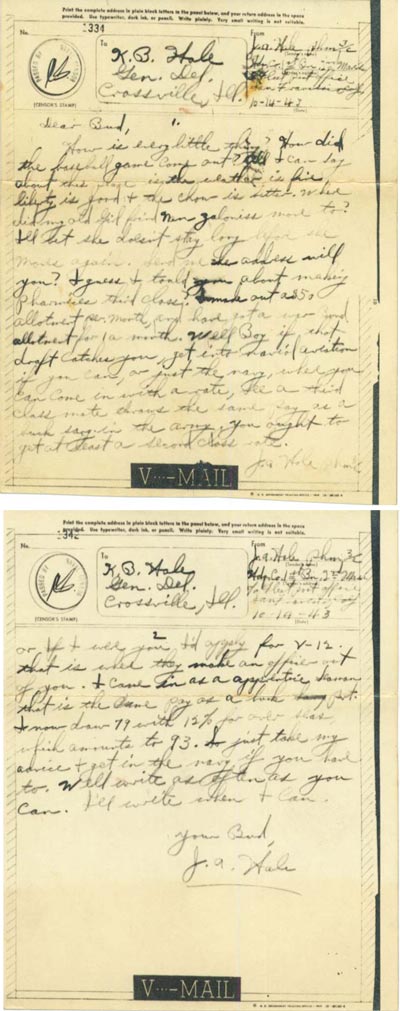 Print the complete address in plain block letters in the panel below, and your return address in the space
provided. Use typewriter, dark ink, or pencil. Write plainly. Very small writing is not suitable.
No. 334
To
K.B. Hale
Gen. Del.
Crossville, Ill.
From
J.A. Hale Phm 3/c
San Francisco
10-14-43
(CENSOR'S STAMP)
Dear Bud, 1.
How is every little thing? How did
the baseball game come out? All I can say
about this place is the weather is fine
liberty is good & the chow is better. Where
did my old girl from move to?
I'll bet she doesn't stay long before she
moves again. Send me the address will
you? I guess I told you about making
Pharmacies third class? I made out a $35
allotment per month, and have got a
allotment for a month. Well Boy if that
draft catches you, get into naval aviation
if you can, or just the navy, where you
can come in with a rate, see a third
class mate draws the same pay as a
buck sarg. in the army. You ought to
get at least a second class rate.
J.A. Hale Phm 3/c
V···-MAIL
Print the complete address in plain block letters in the panel below, and your return address in the space
provided. Use typewriter, dark ink, or pencil. Write plainly. Very small writing is not suitable.
No. 334
To
K.B. Hale
Gen. Del.
Crossville, Ill.
From
J.A. Hale Phm 3/c
10-14-43
(CENSOR'S STAMP)
2
or If I were you I'd apply for V-12.
that is where they make an officer out
of you. I came in as a apprentice seaman
that is the same pay as a buck pvt.
I now draw 79 with 12% for over seas
which amounts to 93. So just take my
advice & get in the navy if you have
to. Well write as often as you
can. I'll write when I can.
Your Bud,
J.A. Hale
V···-MAIL